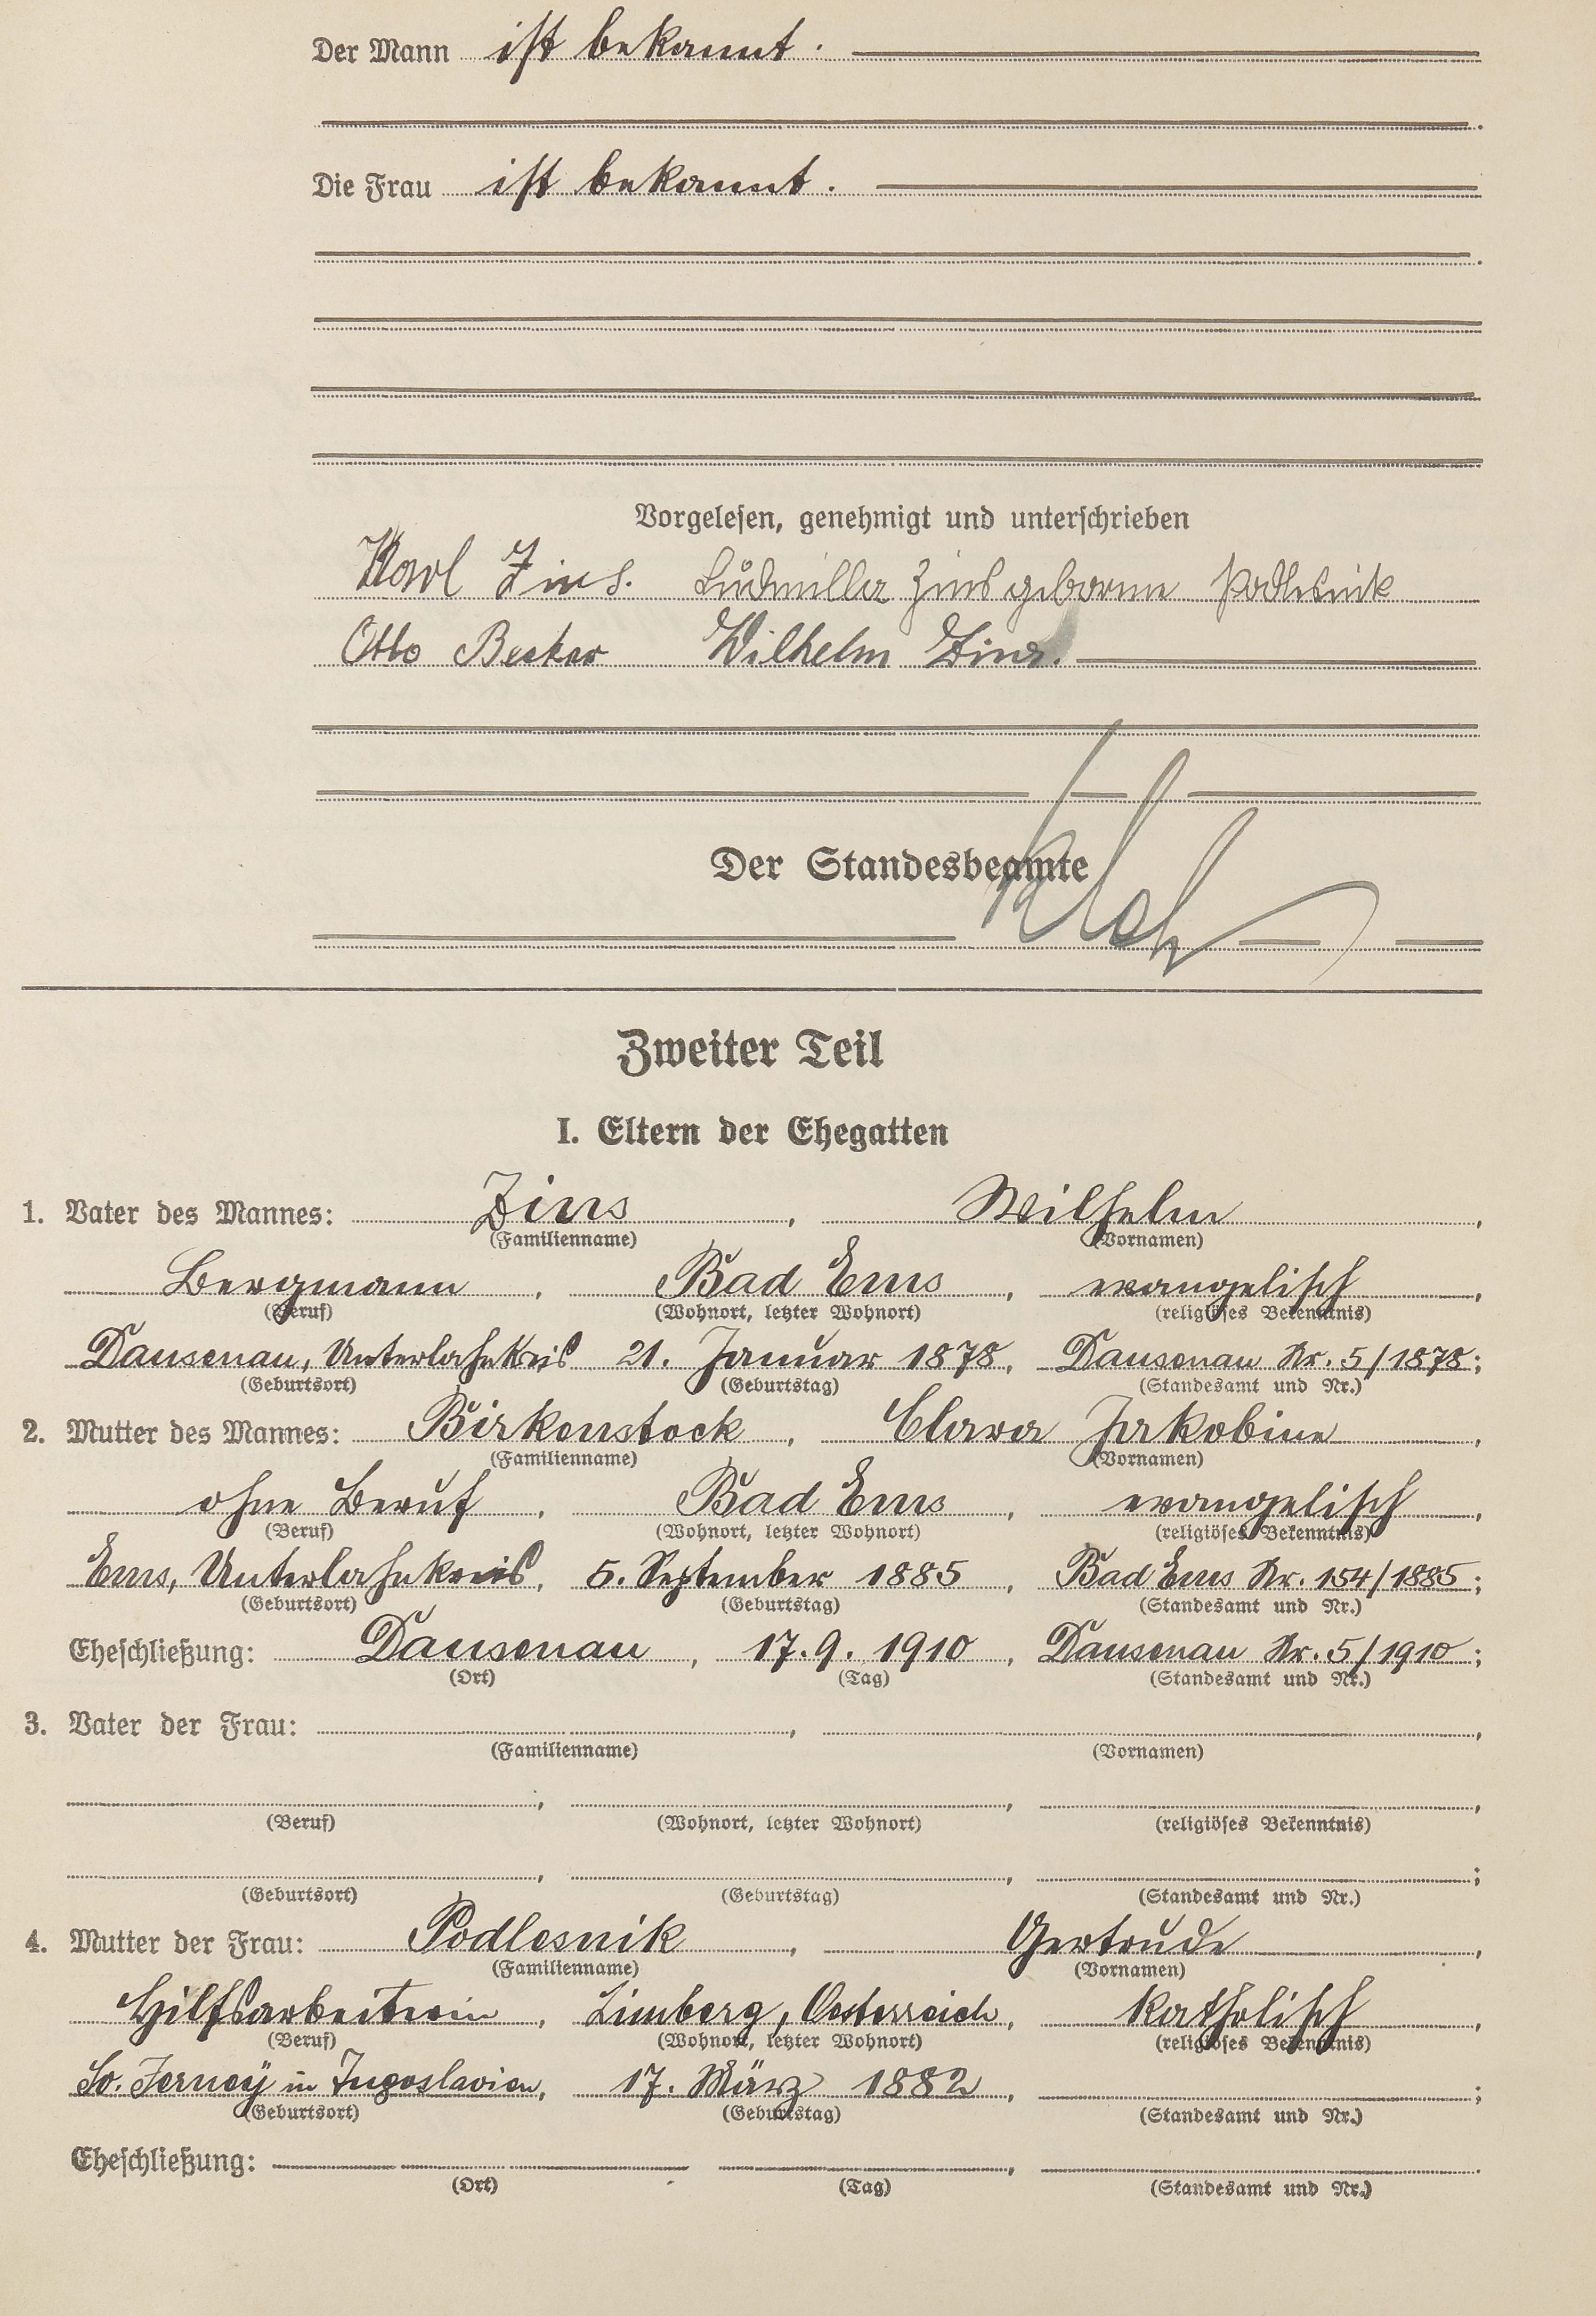 Der Mann ist bekannt.
Die Frau ist bekannt.
Vorgelesen, genehmigt und unterschrieben
Karl Zins. Ludmilla Zins geborene Podlesnik
Otto Becker Wilhelm Zins.
Der Standesbeamte
Zweiter Teil
I. Eltern der Ehegatten
1. Vater des Mannes: Zins, Wilhelm,
(Familienname) (Vornamen)
Bergmann, Bad Ems, evangelisch,
(Beruf) (Wohnort, letzter Wohnort) (religiöses Bekenntnis)
Dausenau, Unterlahnkreis 21. Januar 1878, Dausenau Nr. 5/1878;
(Geburtsort) (Geburtstag) (Standesamt und Nr.)
2. Mutter des Mannes: Birkenstock, Clara Jakobine,
(Familienname) (Vornamen)
ohne Beruf, Bad Ems, evangelisch,
(Beruf) (Wohnort, letzter Wohnort) (religiöses Bekenntnis)
Ems, Unterlahnkreis, 5. September 1885, Bad Ems Nr. 154/1885;
(Geburtsort) (Geburtstag) (Standesamt und Nr.)
Eheschließung: Dausenau, 17.9.1910, Dausenau Nr. 5/1910;
(Ort) (Tag) (Standesamt und Nr.)
3. Vater der Frau: , ,
(Familienname) (Vornamen)
, , ,
(Beruf) (Wohnort, letzter Wohnort) (religiöses Bekenntnis)
, , ;
(Geburtsort) (Geburtstag) (Standesamt und Nr.)
4. Mutter der Frau: Podlesnik, Gertrude,
(Familienname) (Vornamen)
Hilfsarbeiterin, Limberg, Oesterreich, katholisch,
(Beruf) (Wohnort, letzter Wohnort) (religiöses Bekenntnis)
Sv. Jerney in Jugoslavien, 17. März 1882, ;
(Geburtsort) (Geburtstag) (Standesamt und Nr.)
Eheschließung: , .
(Ort) (Tag) (Standesamt und Nr.)